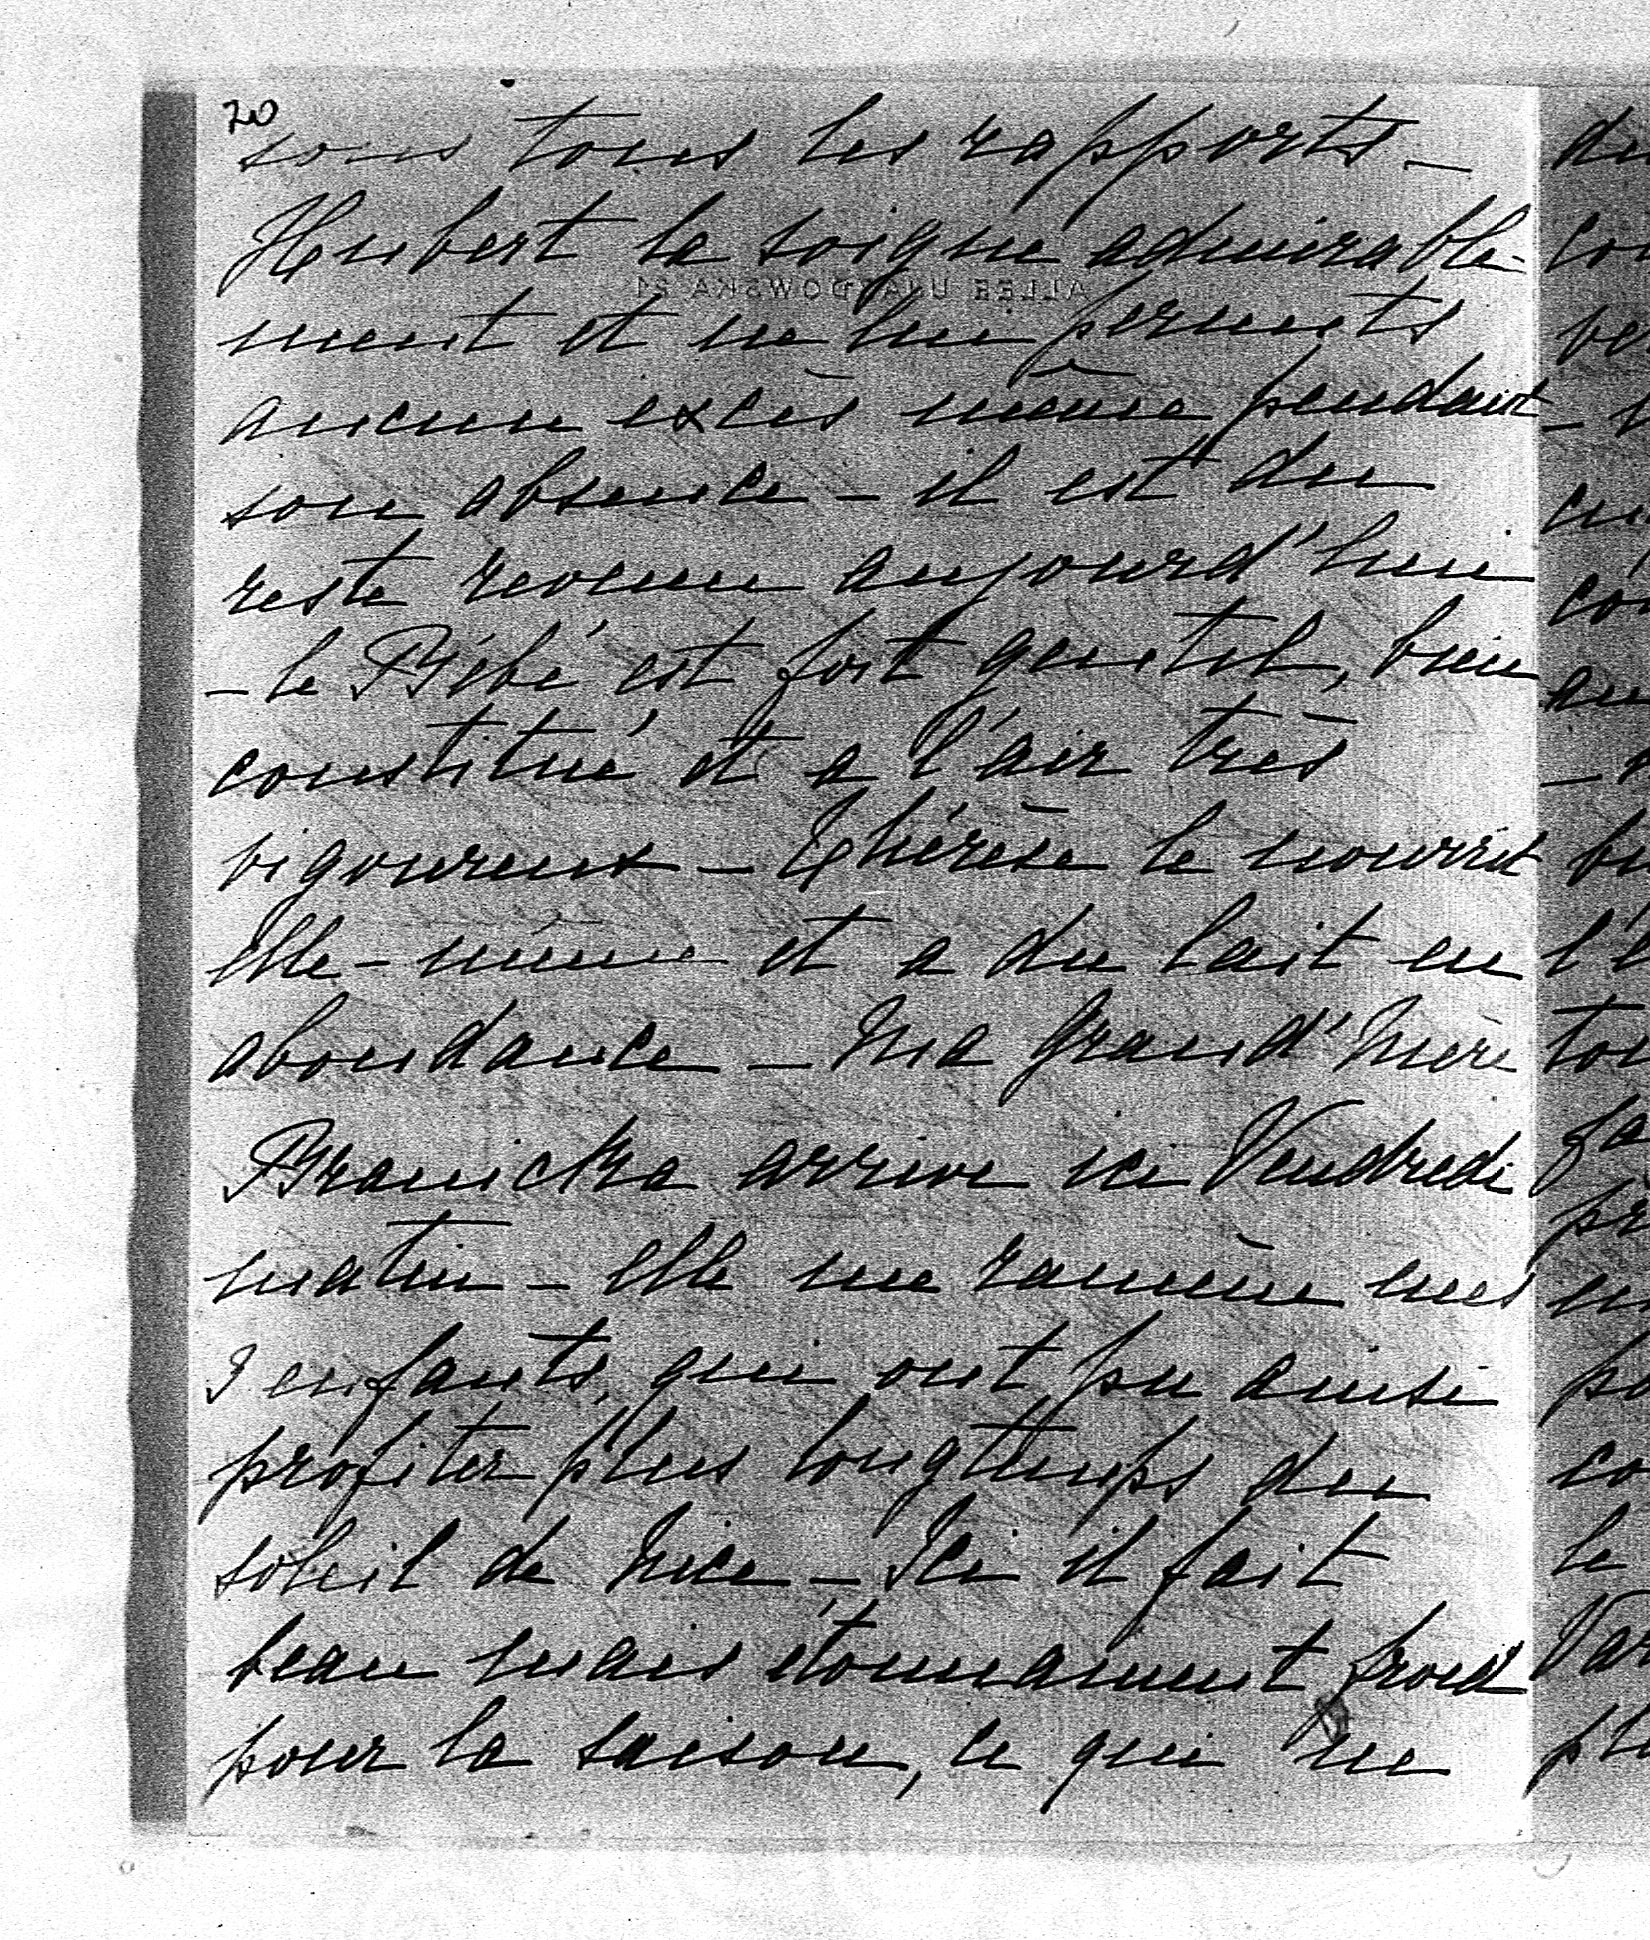 20
sous tous les rapports —
Hubert la soigne admirable-
ment et ne lui permets
aucun excès même pendant
son absence — il est du
reste revenu aujourd'hui
— le Bébé est fort gentil, bien
constitué et a l'air très
vigoureux — Thérèse le nourrit
elle-même et a du lait en
abondance — Ma Grand'Mère
Branicka arrive ici Vendredi
matin — elle me ramène mes
3 enfants, qui ont pu ainsi
profiter plus longtemps du
soleil de Nice — Ici il fait
beau mais étonnament froid
pour la saison, ce qui me